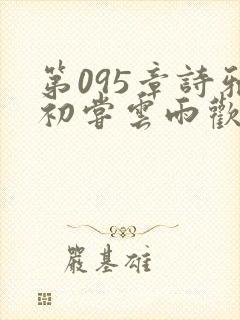 第095章詩雅
初嘗雲雨歡
嚴基雄